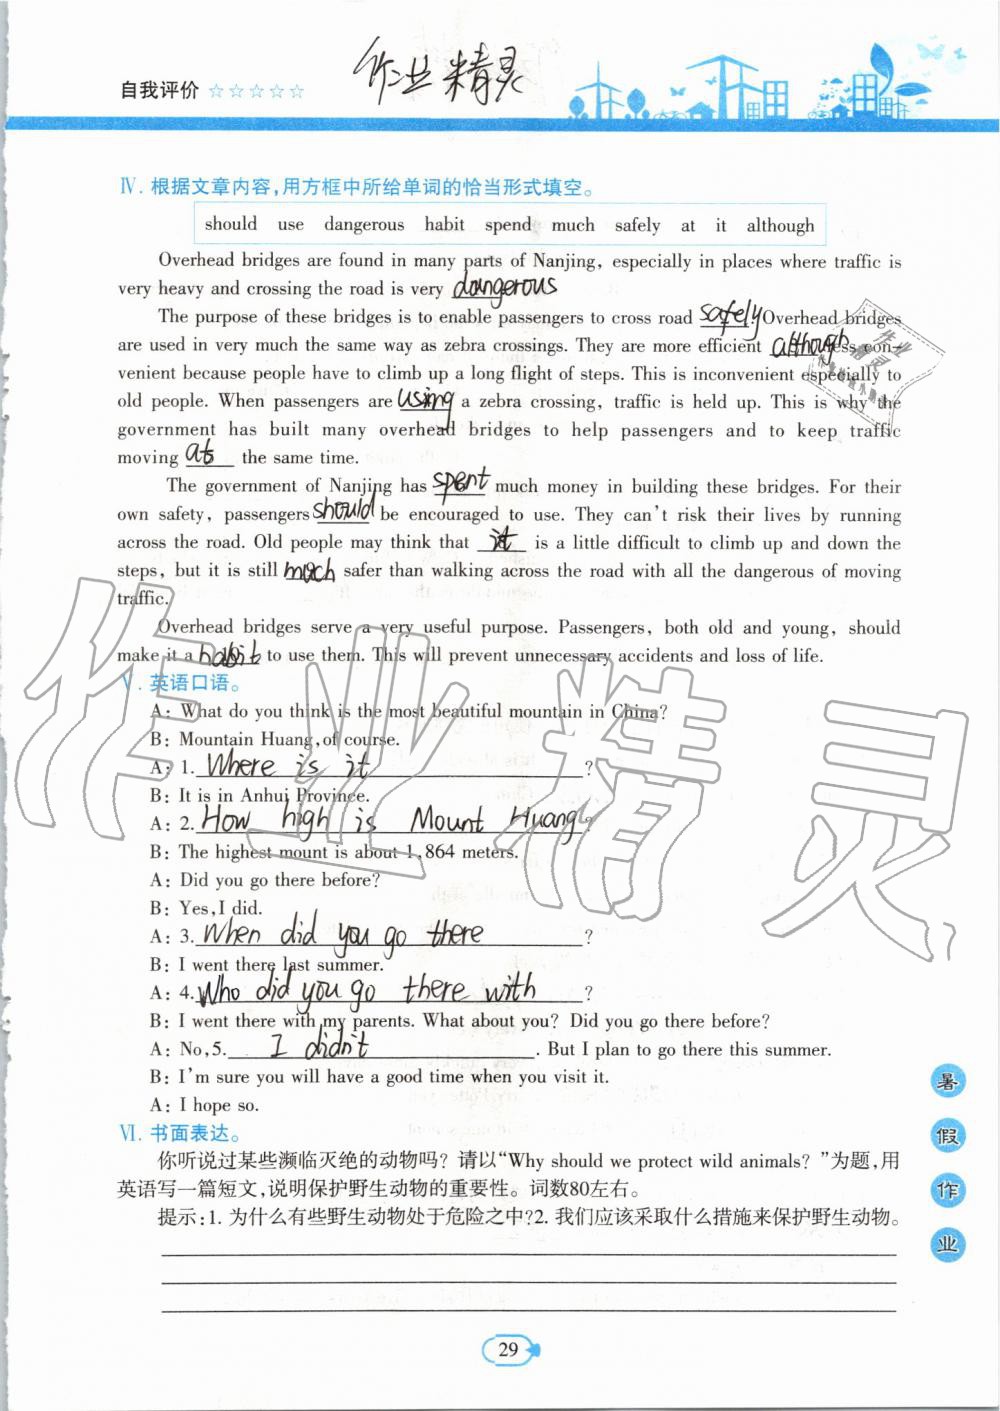 自我评价 ☆☆☆☆☆
作业精灵
Ⅳ. 根据文章内容,用方框中所给单词的恰当形式填空。
should use dangerous habit spend much safely at it although
Overhead bridges are found in many parts of Nanjing, especially in places where traffic is
very heavy and crossing the road is very dangerous
The purpose of these bridges is to enable passengers to cross road safely. Overhead bridges
are used in very much the same way as zebra crossings. They are more efficient although less con-
venient because people have to climb up a long flight of steps. This is inconvenient especially to
old people. When passengers are using a zebra crossing, traffic is held up. This is why the
government has built many overhead bridges to help passengers and to keep traffic
moving at the same time.
The government of Nanjing has spent much money in building these bridges. For their
own safety, passengers should be encouraged to use. They can't risk their lives by running
across the road. Old people may think that it is a little difficult to climb up and down the
steps, but it is still much safer than walking across the road with all the dangerous of moving
traffic.
Overhead bridges serve a very useful purpose. Passengers, both old and young, should
make it a habit to use them. This will prevent unnecessary accidents and loss of life.
Ⅴ. 英语口语。
A: What do you think is the most beautiful mountain in China?
B: Mountain Huang, of course.
A: 1. Where is it ?
B: It is in Anhui Province.
A: 2. How high is Mount Huang ?
B: The highest mount is about 1,864 meters.
A: Did you go there before?
B: Yes, I did.
A: 3. When did you go there ?
B: I went there last summer.
A: 4. Who did you go there with ?
B: I went there with my parents. What about you? Did you go there before?
A: No, 5. I didn't . But I plan to go there this summer.
B: I'm sure you will have a good time when you visit it.
A: I hope so.
Ⅵ. 书面表达。
你听说过某些濒临灭绝的动物吗? 请以“Why should we protect wild animals? ”为题,用
英语写一篇短文,说明保护野生动物的重要性。词数80左右。
提示:1. 为什么有些野生动物处于危险之中?2. 我们应该采取什么措施来保护野生动物。
作业精灵
暑
假
作
业
29